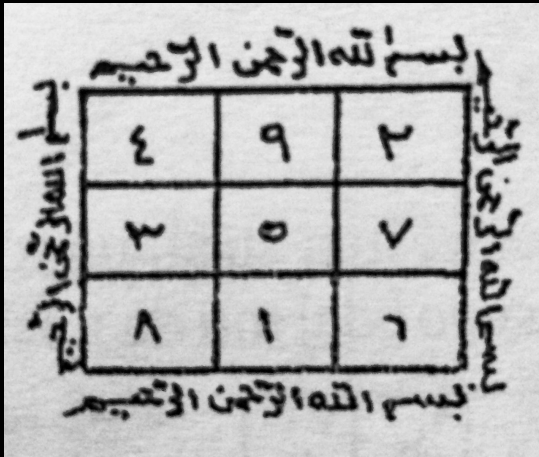 بسم الله الرحمن الرحيم
بسم الله الرحمن الرحيم
٤ ٩ ٢
٣ ٥ ٧
٨ ١ ٦
بسم الله الرحمن الرحيم
بسم الله الرحمن الرحيم